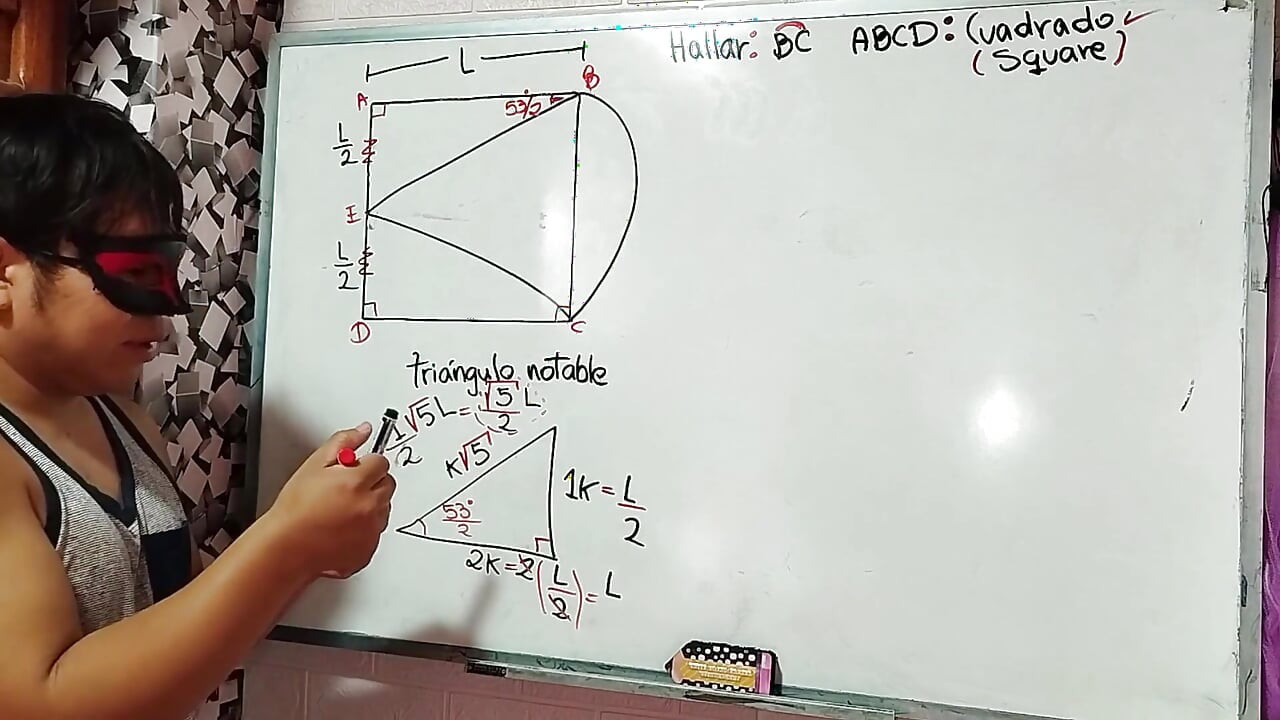 Hallar: BC ABCD: Cuadrado ✓
(Square)
L
A B
53°/2
L/2
E
L/2
D C
triángulo notable
1/2 √5 L = √5/2 L
K√5
1K = L/2
53°/2
2K = 2(L/2) = L